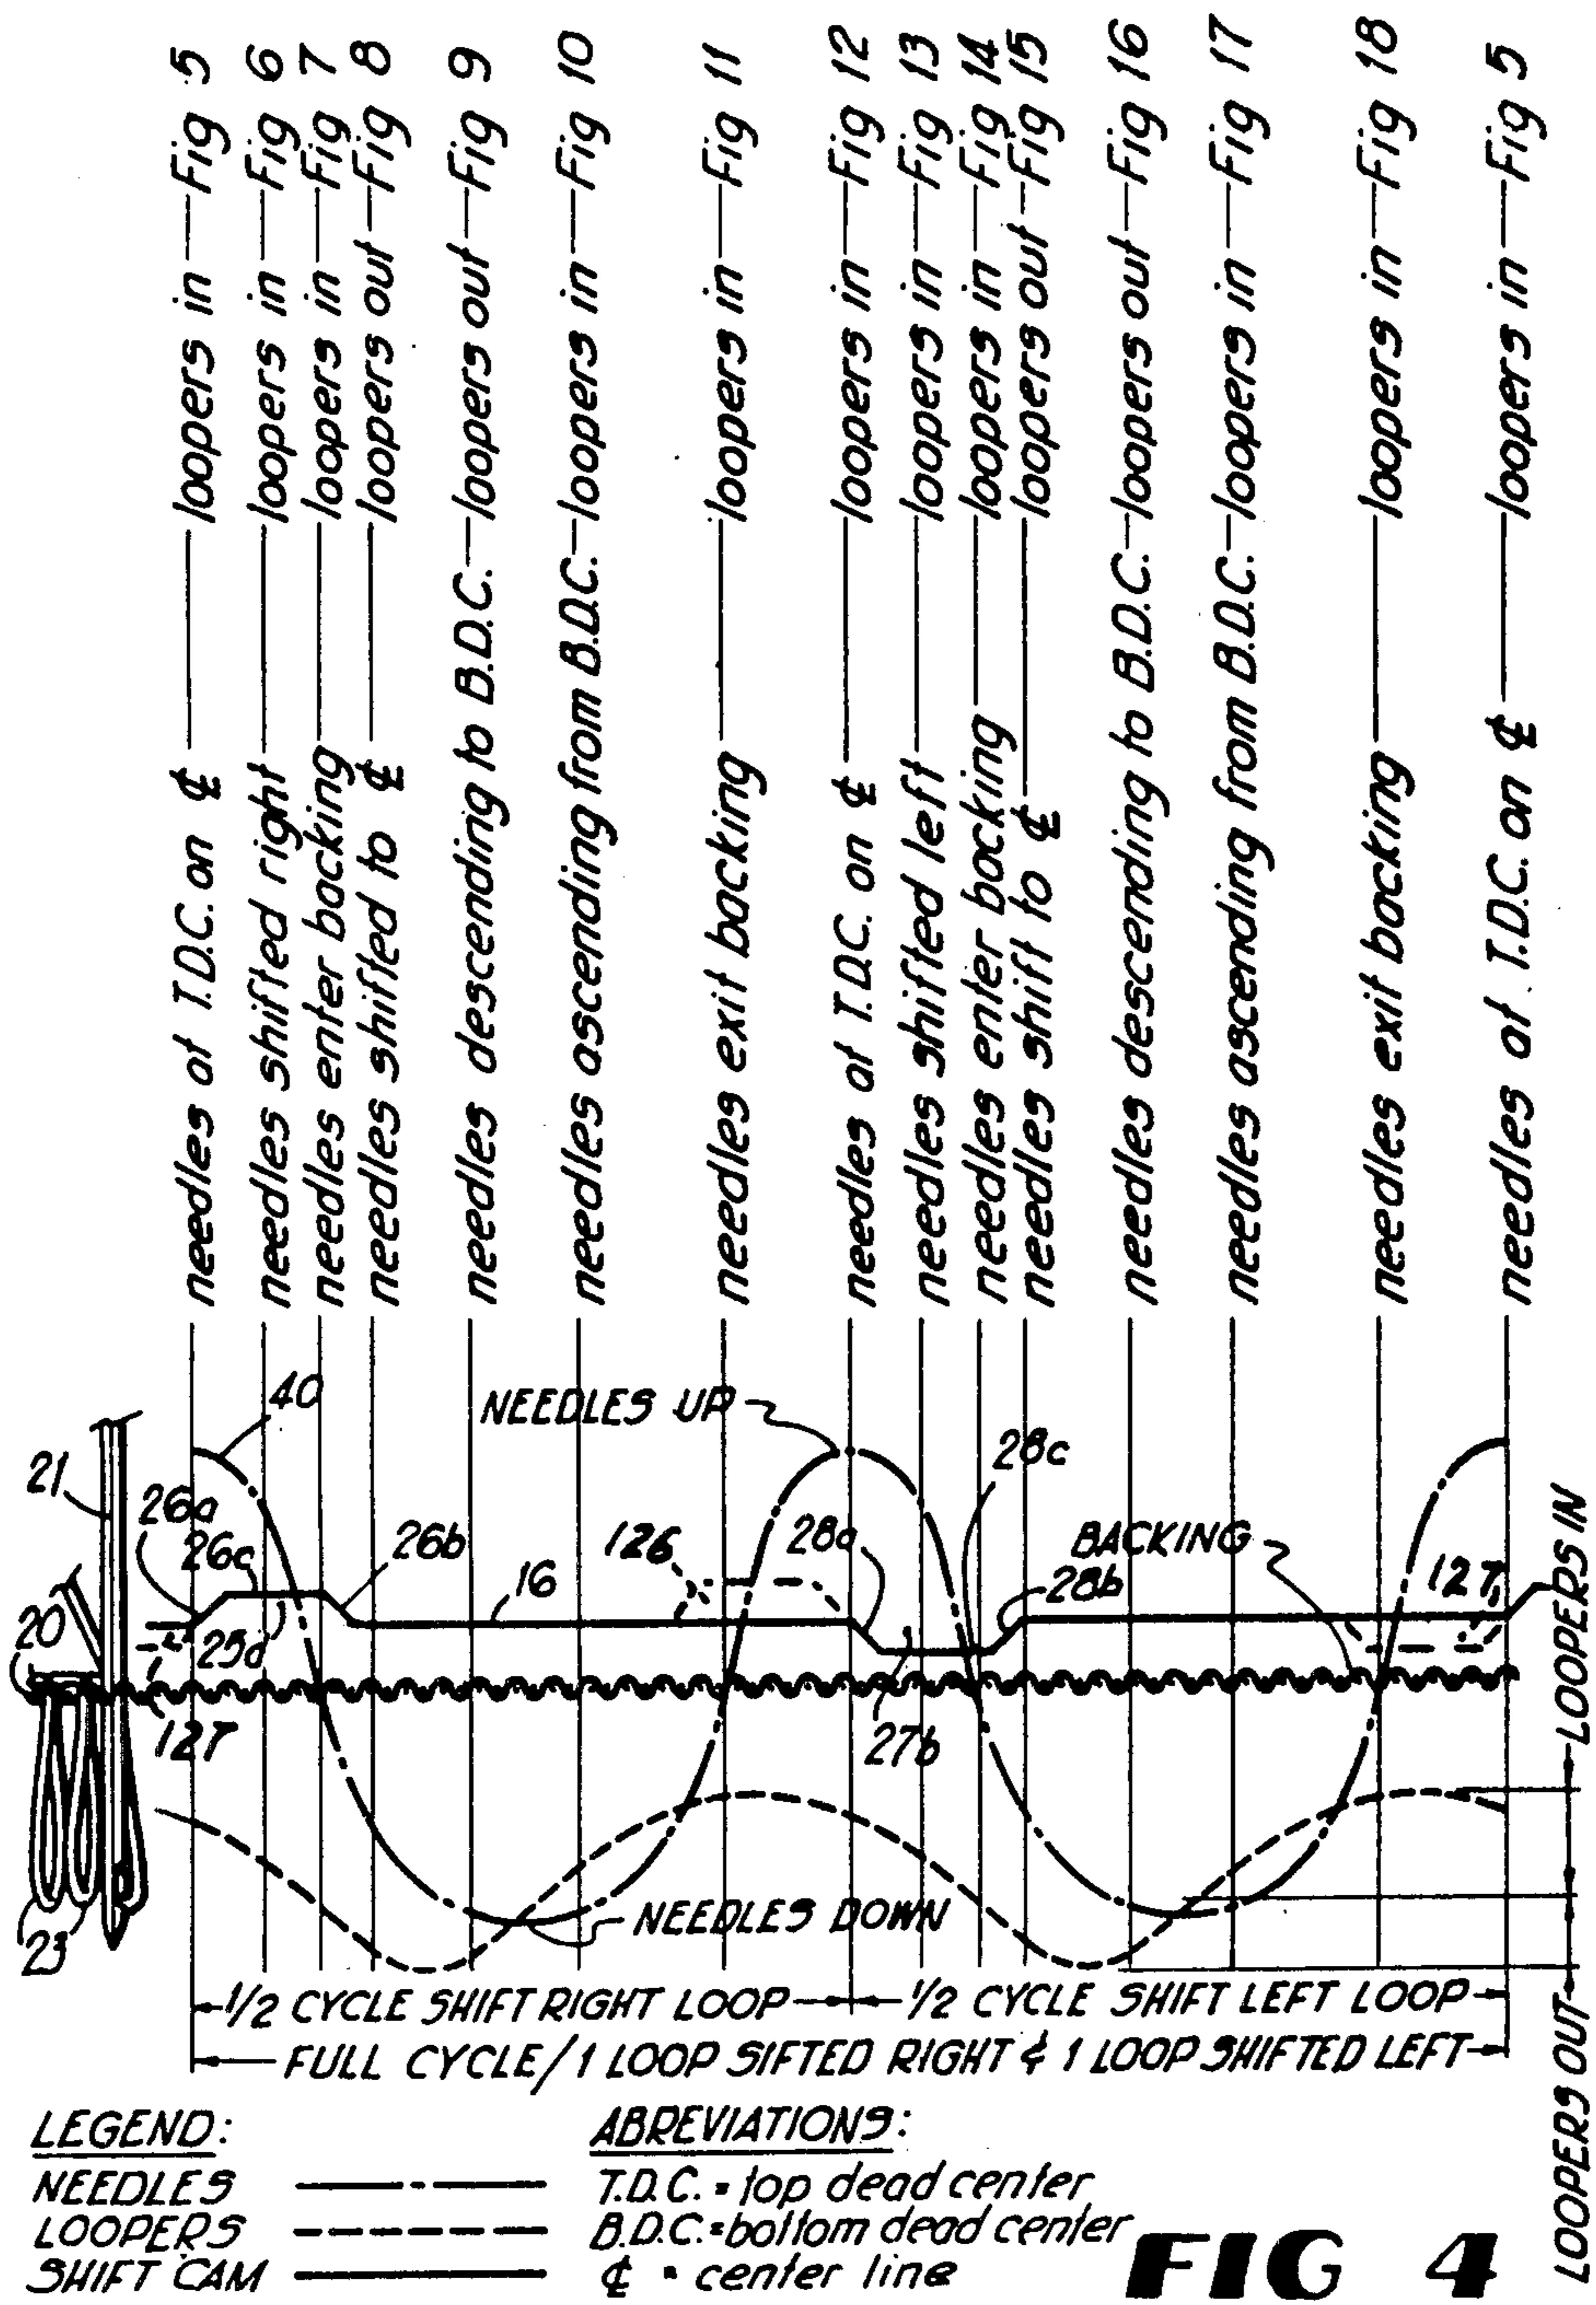 needles at T.D.C. on ℄ — loopers in — Fig 5
needles shifted right — loopers in — Fig 6
needles enter backing — loopers in — Fig 7
needles shifted to ℄ — loopers out — Fig 8
needles descending to B.D.C. — loopers out — Fig 9
needles ascending from B.D.C. — loopers in — Fig 10
needles exit backing — loopers in — Fig 11
needles at T.D.C. on ℄ — loopers in — Fig 12
needles shifted left — loopers in — Fig 13
needles enter backing — loopers in — Fig 14
needles shift to ℄ — loopers out — Fig 15
needles descending to B.D.C. — loopers out — Fig 16
needles ascending from B.D.C. — loopers in — Fig 17
needles exit backing — loopers in — Fig 18
needles at T.D.C. on ℄ — loopers in — Fig 5
40
NEEDLES UP
28c
21
26a
26c
26b
126
28a
BACKING
127
16
28b
20
25d
127
27b
23
NEEDLES DOWN
LOOPERS IN
LOOPERS OUT
1/2 CYCLE SHIFT RIGHT LOOP
1/2 CYCLE SHIFT LEFT LOOP
FULL CYCLE/1 LOOP SIFTED RIGHT & 1 LOOP SHIFTED LEFT
LEGEND:
NEEDLES
LOOPERS
SHIFT CAM
ABREVIATIONS:
T.D.C. = top dead center
B.D.C. = bottom dead center
℄ = center line
FIG 4